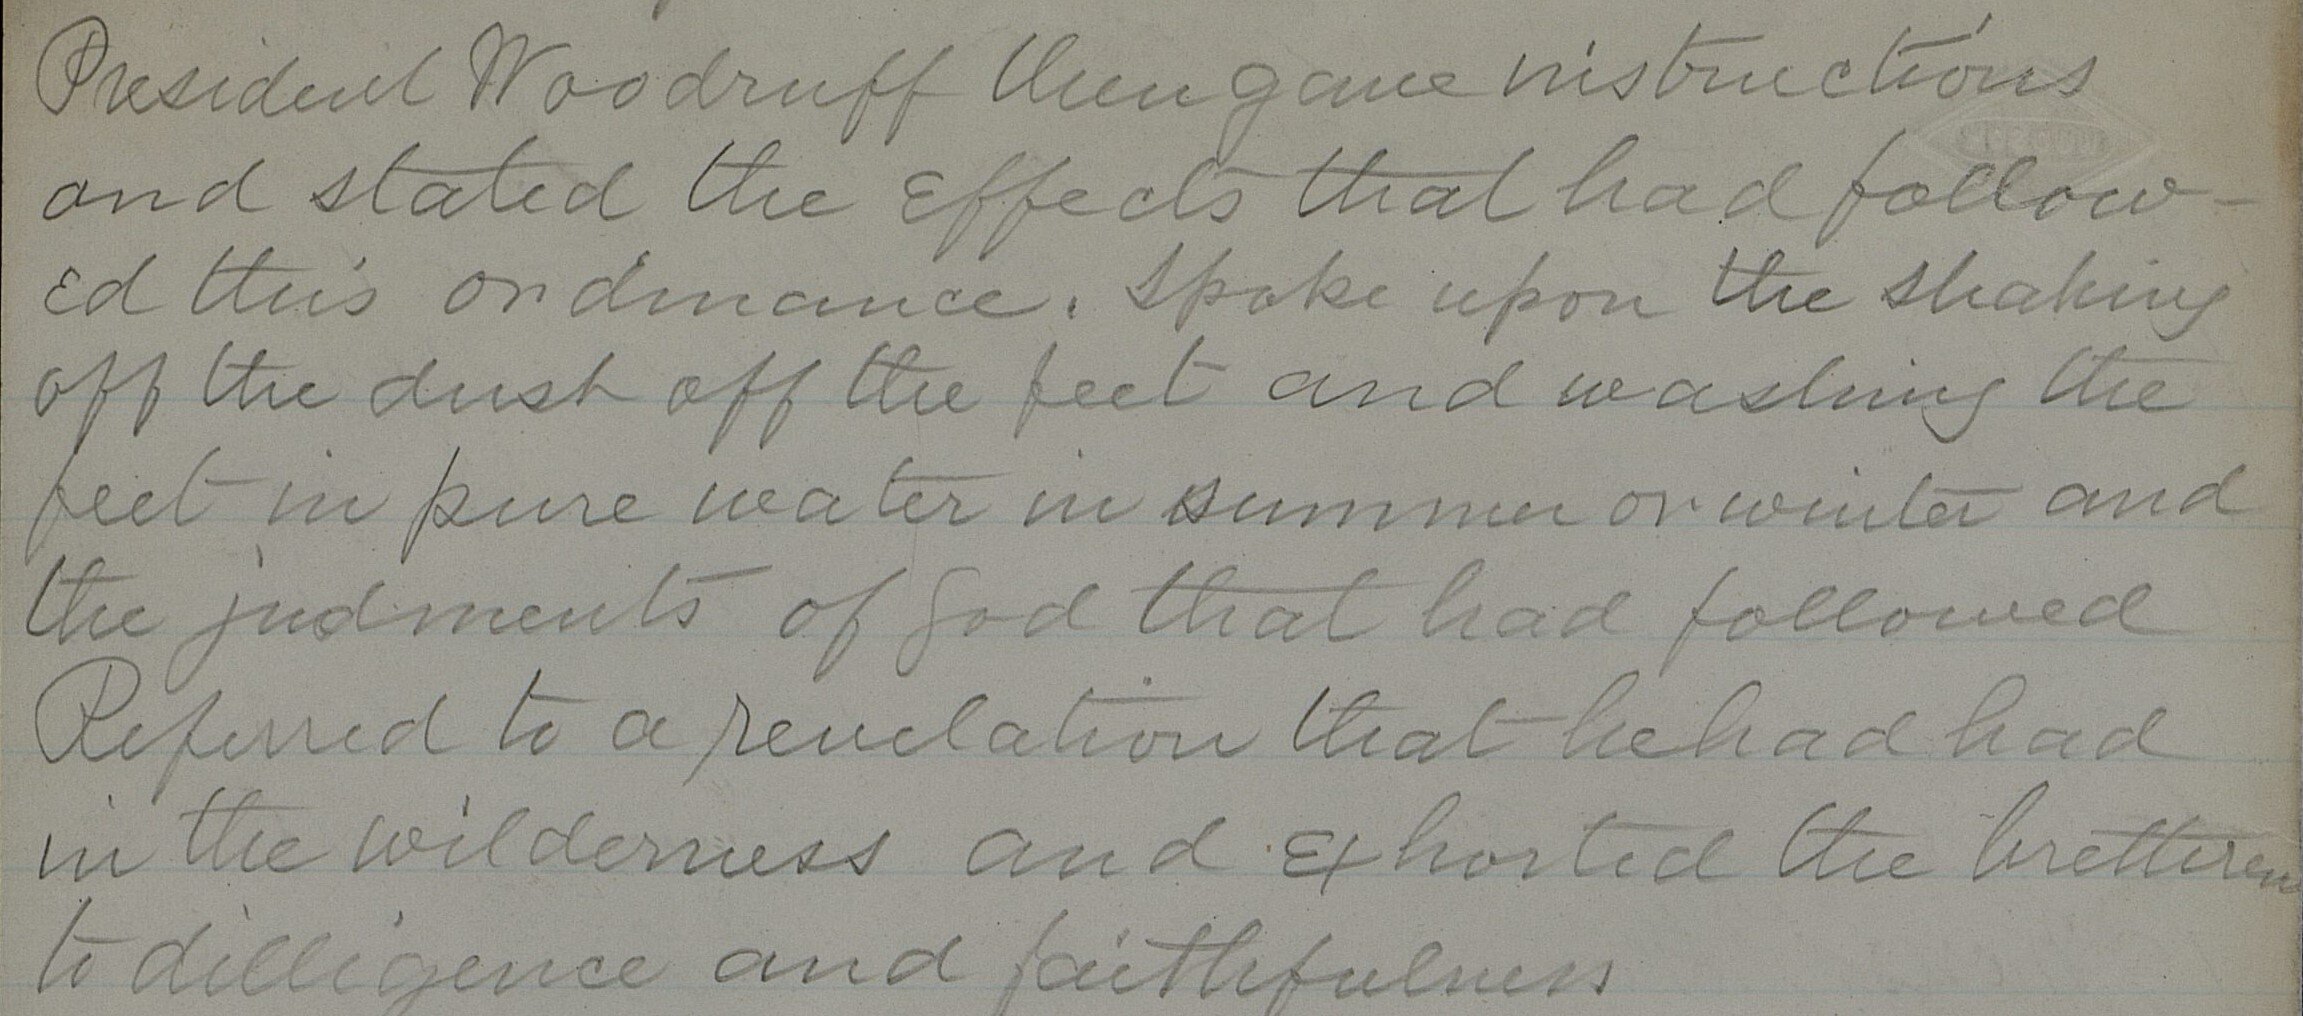 President Woodruff then gave instructions
and stated the Effects that had follow-
ed this ordinance. Spoke upon the shaking
off the dust off the feet and washing the
feet in pure water in summer or winter and
the judments of God that had followed
Referred to a revelation that he had had
in the wilderness and Exhorted the brethren
to dilligence and faithfulness